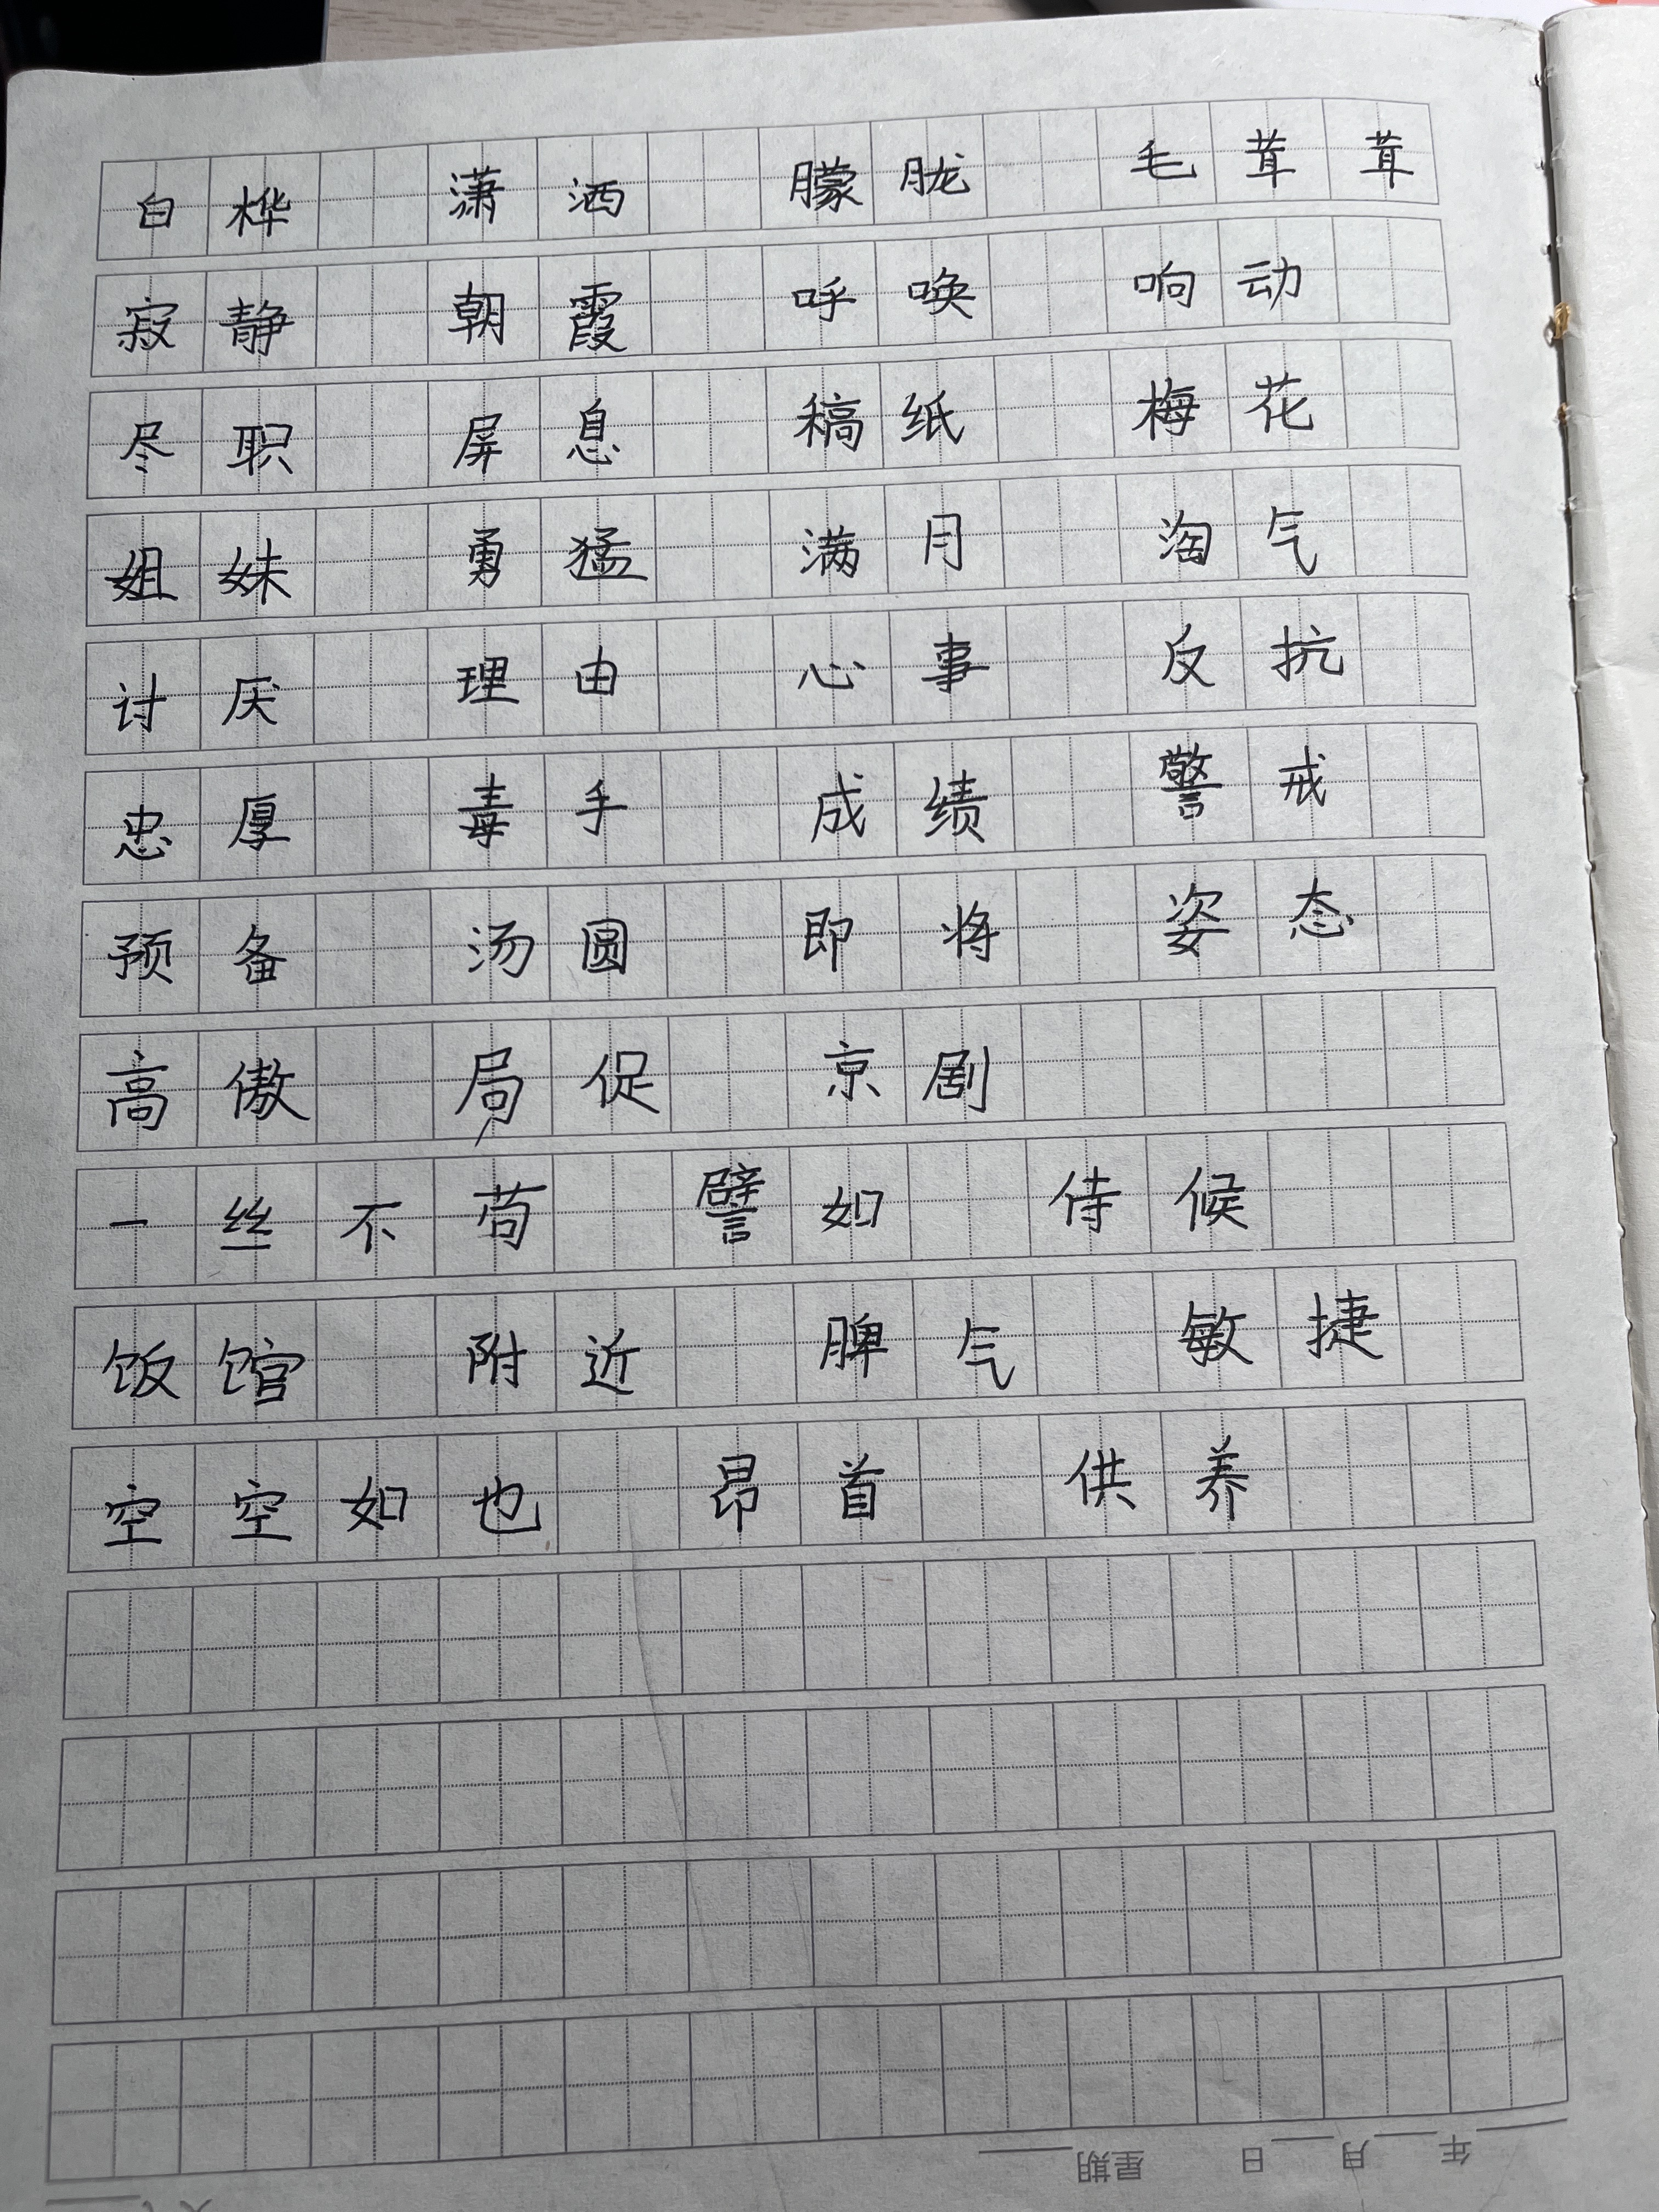 白桦 潇洒 朦胧 毛茸茸
寂静 朝霞 呼唤 响动
尽职 屏息 稿纸 梅花
姐妹 勇猛 满月 淘气
讨厌 理由 心事 反抗
忠厚 毒手 成绩 警戒
预备 汤圆 即将 姿态
高傲 局促 京剧
一丝不苟 譬如 侍候
饭馆 附近 脾气 敏捷
空空如也 昂首 供养
年 月 日 星期